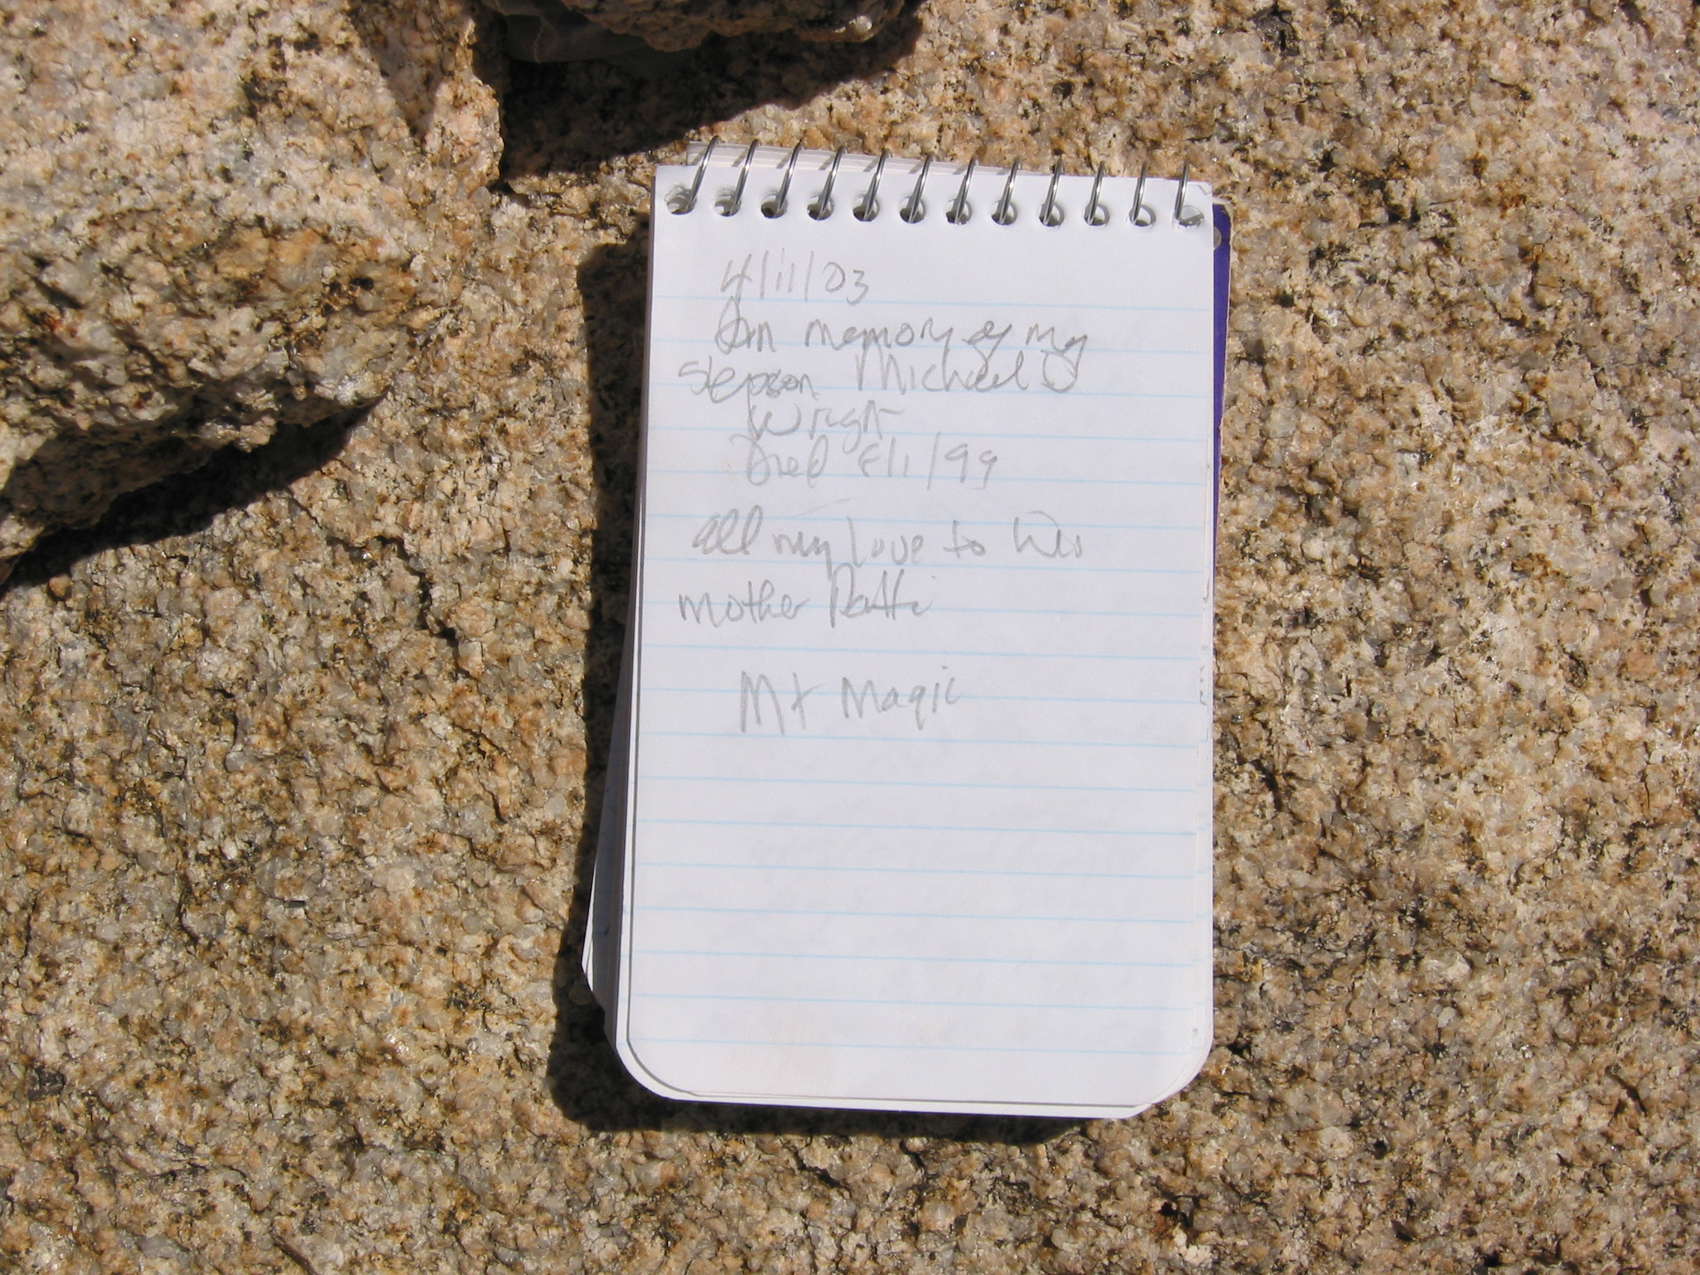 4/11/03
In memory of my
stepson Michael J
Wright
Died 8/1/99
all my love to his
mother Patti
Mt Magic